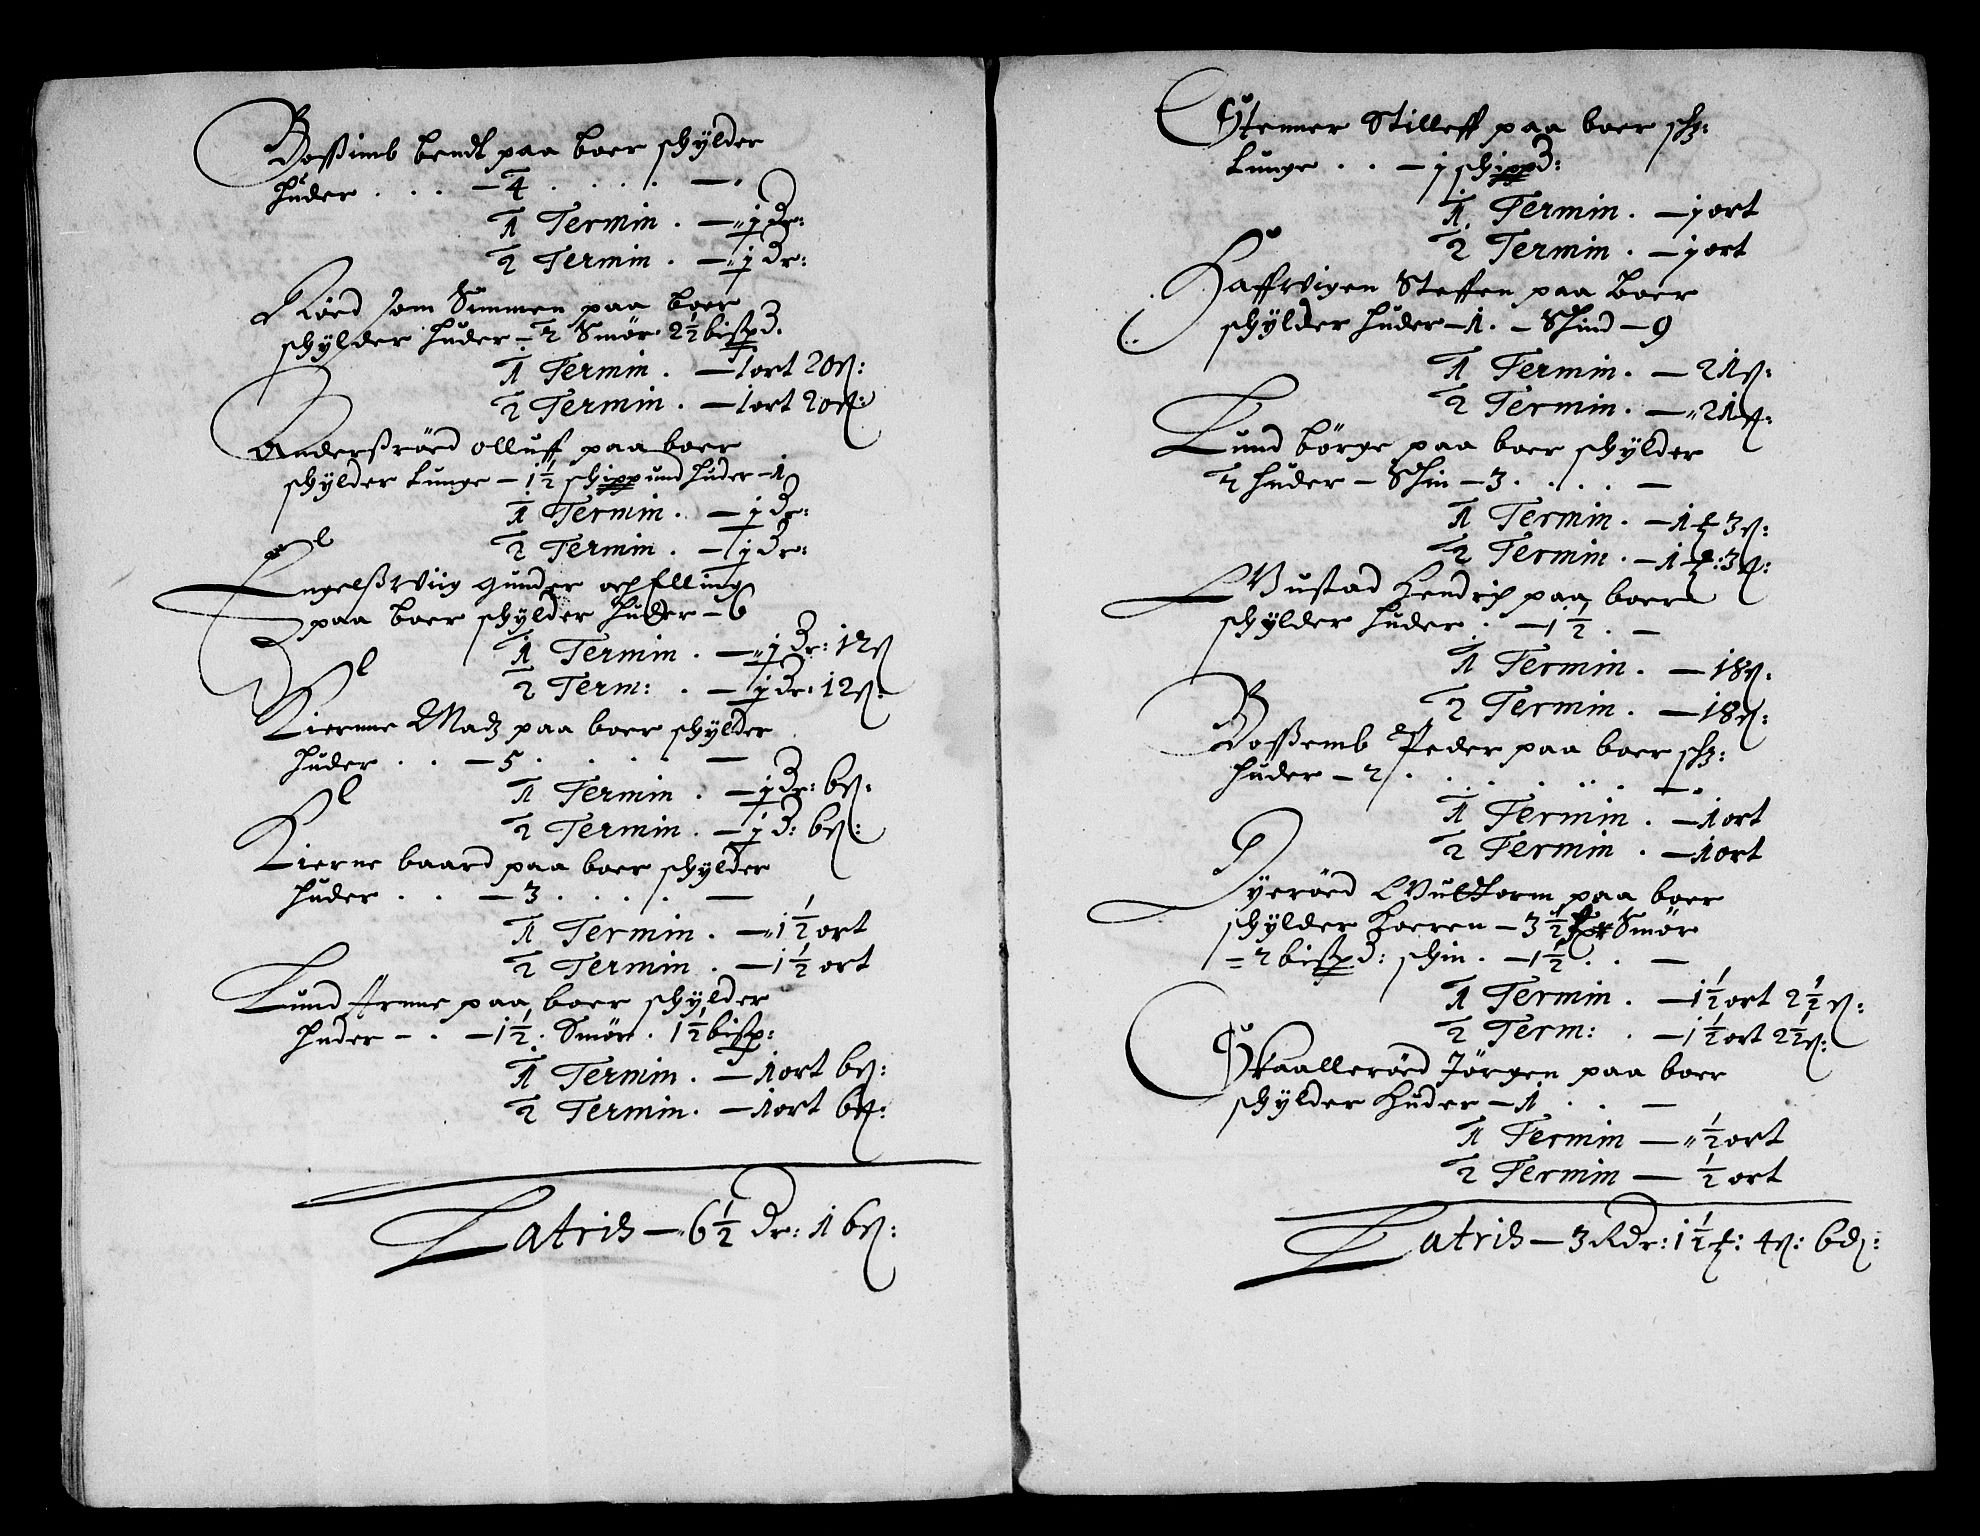 Boßimb bendt paa boer schÿlder
huder . . . - 4 . . . . -
1 Termin . - 1 Dr:
2 Termin . - 1 Dr:
Röed Jom Simmen paa boer
schÿlder huder - 2 Smör 2½ bißpd.
1 Termin . - 1 ort 20 ß:
2 Termin . - 1 ort 20 ß:
Anderßröed olluff paa boer
schÿlder tunge - 1½ schippund huder - 1
1 Termin . - 1 Dr:
2 Termin . - 1 Dr:
Engelßwiig gunder och Elling
paa boer schÿlder huder - 6
1 Termin . - 1 Dr: 12 ß
2 Term: . - 1 dr: 12 ß.
Kiernne Madz paa boer schÿlder
huder . . - 5 . . . . -
1 Termin . - 1 Dr: 6 ß:
2 Termin . - 1 D: 6 ß:
Kierne baard paa boer schÿlder
huder . . - 3 . . . . -
1 Termin . - 1½ ort
2 Termin . - 1½ ort
Lund Arnne paa boer schÿlder
huder - . - 1½ . Smör . 1½ bißp:
1 Termin . - 1 ort 6 ß:
2 Termin . - 1 ort 6 ß:
Latriß - 6½ Dr: 16 ß:
Stenner Stilleff paa boer schz:
tunge . . - 1 schippd:
1 Termin . - 1 ort
2 Termin . - 1 ort
Haffwigen Steffen paa boer
schÿlder huder - 1 . - Skind - 9
1 Termin . - 21 ß:
2 Termin . - 21 ß:
Lund börge paa boer schÿlder
2 huder - Skin - 3 . . . . -
1 Termin . - 1 ₰ 3 ß:
2 Termin . - 1 ₰: 3 ß:
Wustad Hendrich paa boer
schÿlder huder . - 1½ . -
1 Termin . - 18 ß:
2 Termin . - 18 ß:
Boßemb Peder paa boer schz:
huder - 2 . . . . . -
1 Termin . - 1 ort
2 Termin . - 1 ort
Dyeröed Wuldtorm paa boer
schÿlder Koeren - 3½ Smör
- 2 bißpd: schin . - 1½ . . -
1 Termin . - 1½ ort 2½ ß:
2 Term: . - 1½ ort 2½ ß:
Skaalleröed Jörgen paa boer
schÿlder huder - 1 . . -
1 Termin - ½ ort
2 Termin - ½ ort
Latriß - 3 Rdr: 1½ ₰: 4 ß: 6 d: